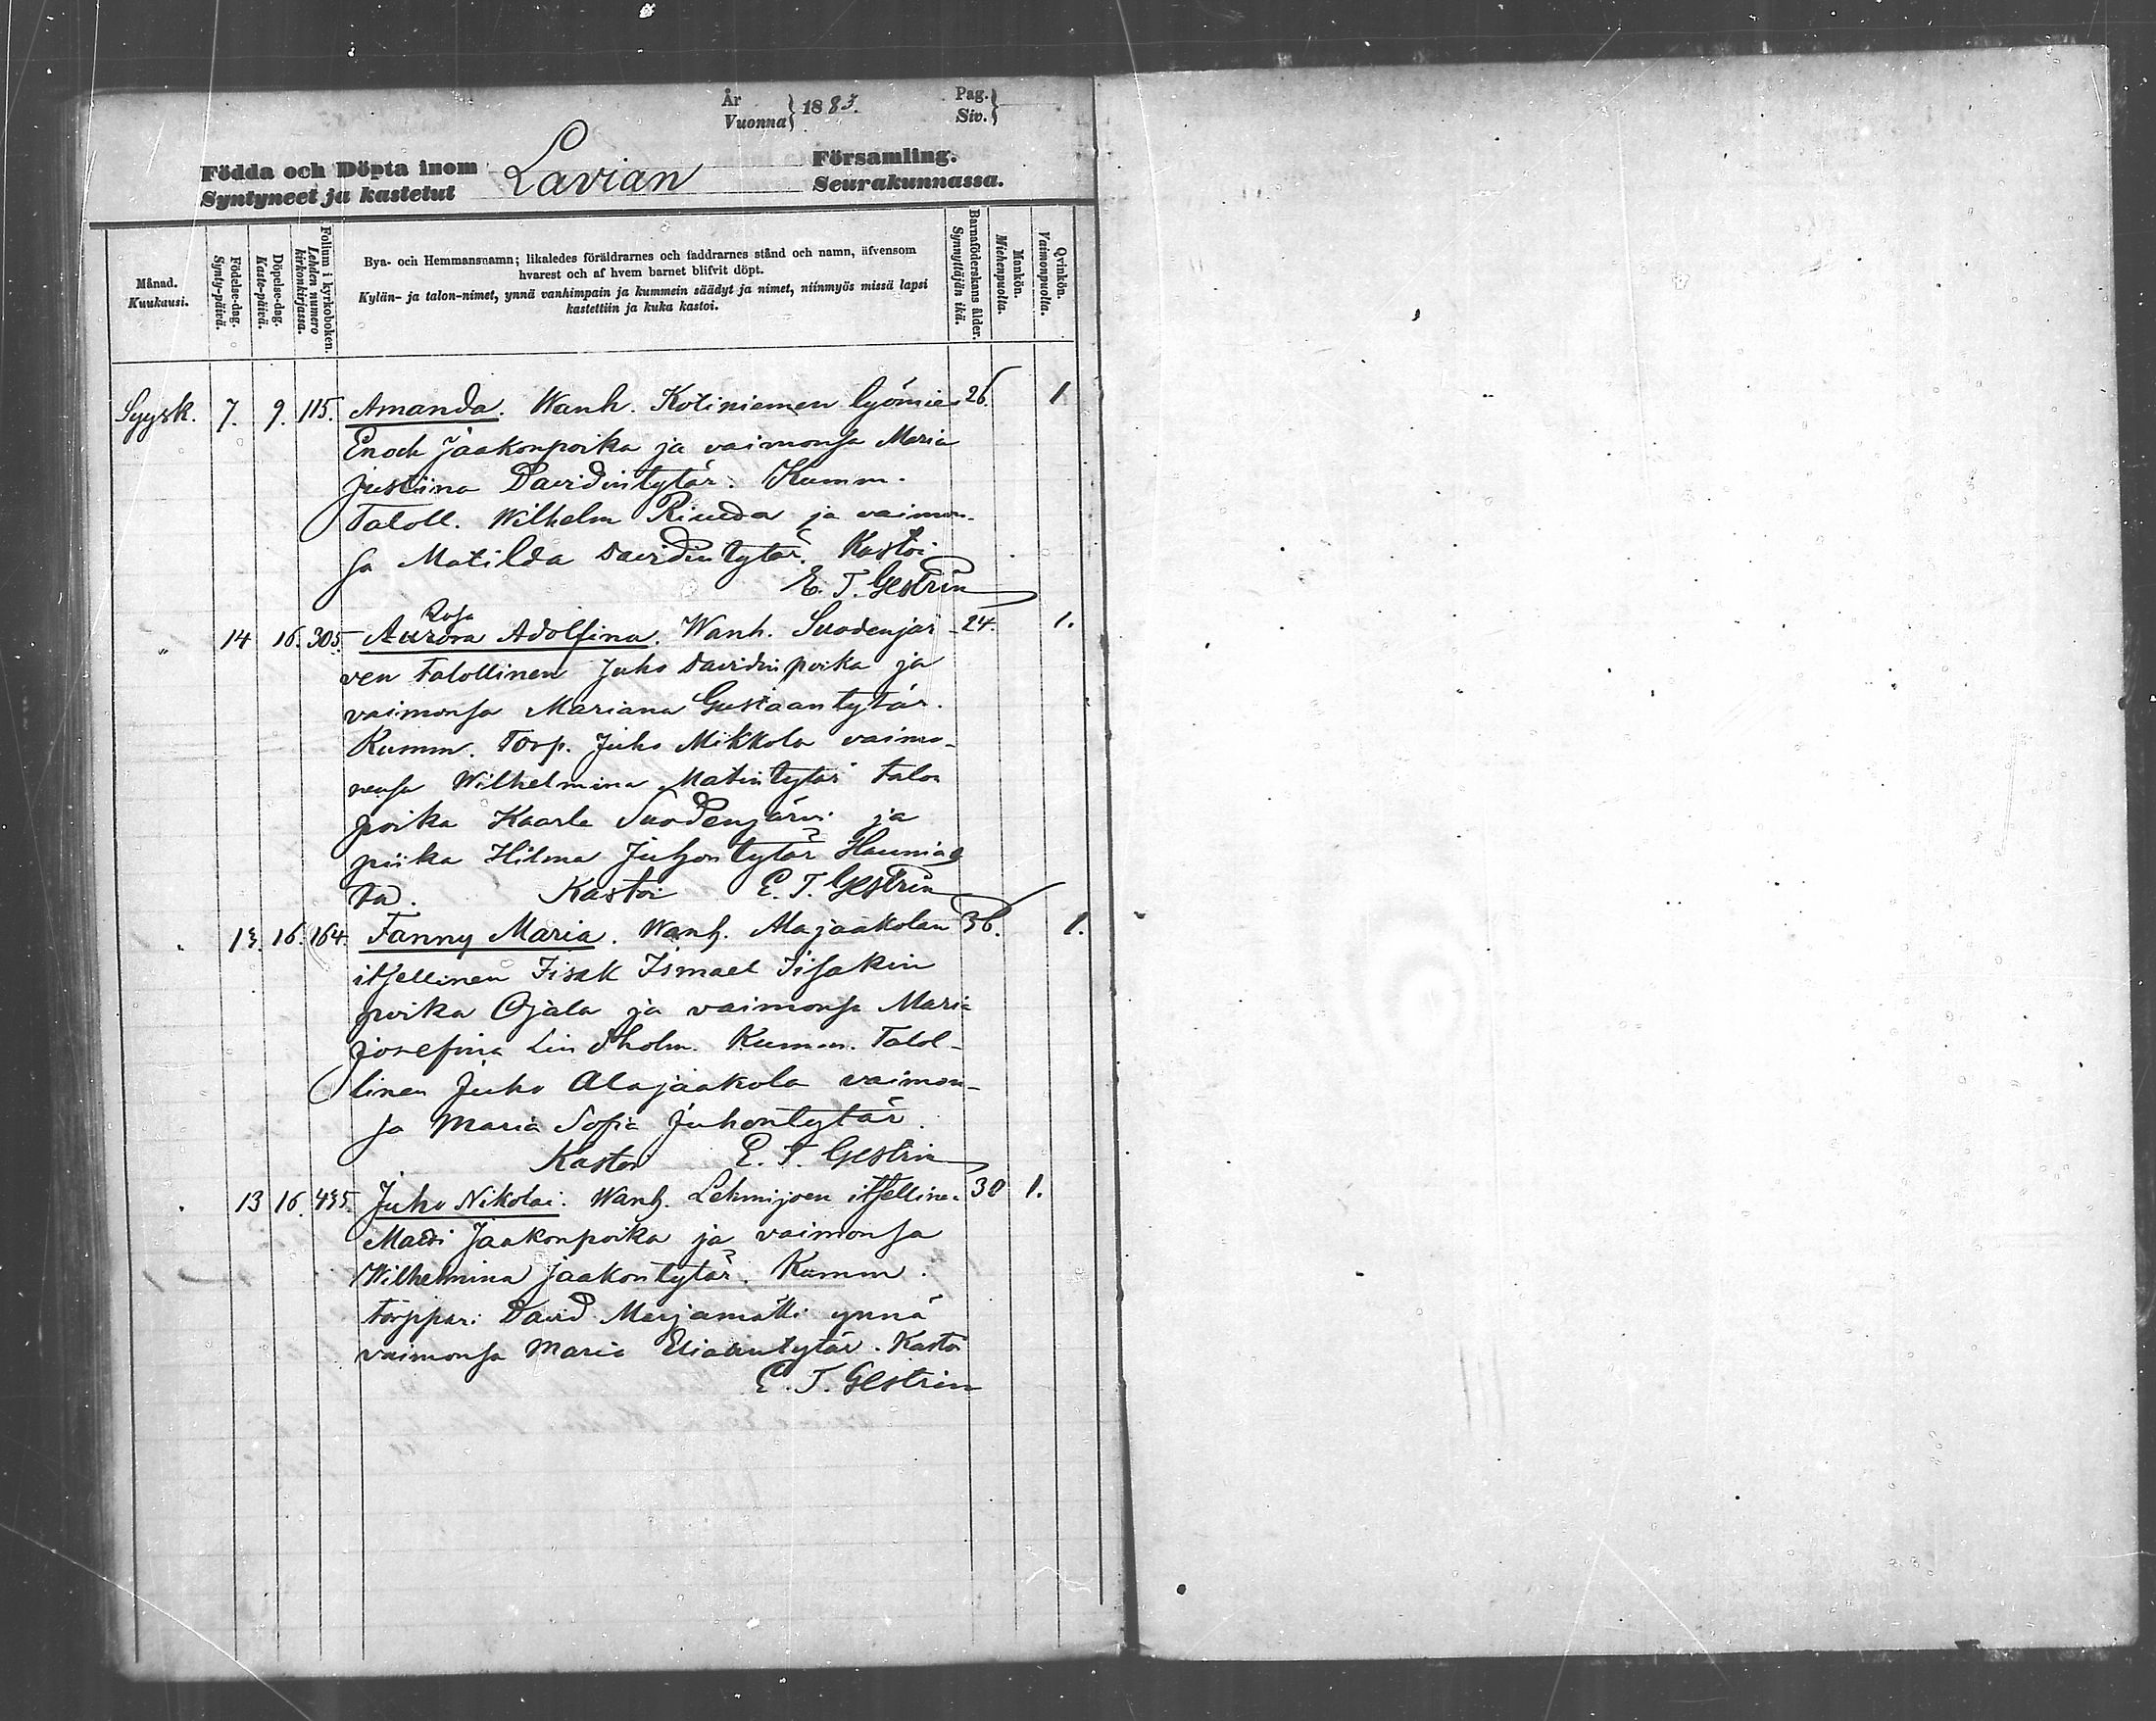 År
Vuonna } 1883.
Pag.
Siv. }
Födda och Döpta inom
Syntyneet ja kastetut
Lavian
Församling.
Seurakunnassa.
Månad.
Kuukausi.
Födelse-dag.
Synty-päivä.
Döpelse-dag.
Kaste-päivä.
Folium i kyrkoboken.
Lehden numero
kirkonkirjassa.
Bya- och Hemmansnamn; likaledes föräldrarnes och faddrarnes stånd och namn, äfvensom
hvarest och af hvem barnet blifvit döpt.
Kylän- ja talon-nimet, ynnä vanhimpain ja kummein säädyt ja nimet, niinmyös missä lapsi
kastettiin ja kuka kastoi.
Barnaföderskans ålder.
Synnyttäjän ikä.
Mankön.
Miehenpuolta.
Qvinkön.
Vaimonpuolta.
Syysk. 7. 9. 115. Amanda. Wanh. Kotiniemen työmies 26. 1
Enoch Jaakonpoika ja vaimonsa Maria
Justiina Davidintytär. Kumm.
Taloll. Wilhelm Riuda ja vaimon-
sa Matilda Davidintytär. Kastoi
E. T. Gestrin
Rosa
" 14 16. 305. Aurora Adolfina. Wanh. Suodenjär- 24. 1.
ven Talollinen Juho Davidinpoika ja
vaimonsa Mariana Gustaantytär.
Kumm. Torp. Juho Mikkola vaimo-
nensa Wilhelmina Matintytär talon
poika Kaarle Suodenjärvi ja
piika Hilma Juhontytär Haunia
ta. Kastoi E. T. Gestrin
" 13. 16. 164. Fanny Maria. Wanh. Alajaakolan 36. 1.
itsellinen Iisak Ismael Iisakin
poika Ojala ja vaimonsa Maria
Josefina Lindholm. Kumm. Talol-
linen Juho Alajaakola vaimon-
sa Maria Sofia Juhontytär.
Kastoi E. T. Gestrin
" 13 16. 435. Juho Nikolai. Wanh. Lehmijoen itsellinen 30 1.
Matti Jaakonpoika ja vaimonsa
Wilhelmina Jaakontytär. Kumm.
torppari David Marjamätti ynnä
vaimonsa Maria Eliaantytär. Kastoi
E. T. Gestrin